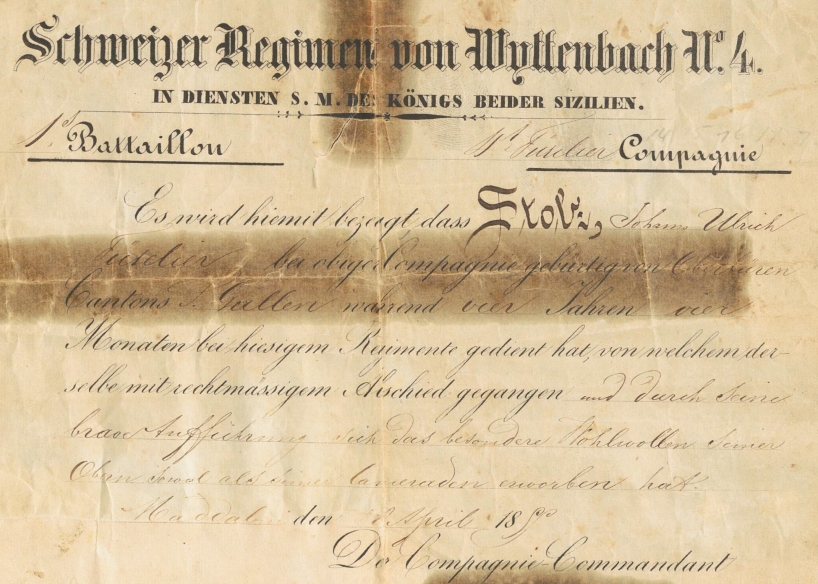 Schweizer Regiment von Wyttenbach No. 4.
IN DIENSTEN S. M. DES KÖNIGS BEIDER SIZILIEN.
1s Battaillon 4t Füselier Compagnie
Es wird hiemit bezeigt dass Johann Ulrich
Füselier bei obiger Compagnie gebürtig von
Cantons St Gallen während vier Jahren vier
Monaten bei hiesigem Regimente gedient hat, von welchem der-
selbe mit rechtmässigem Abschied gegangen und durch seine
brave Aufführung sich das besondere Wohlwollen seiner
Obern sowol als seiner Cameraden erworben hat.
Maddaloni den April 18
Der Compagnie-Commandant